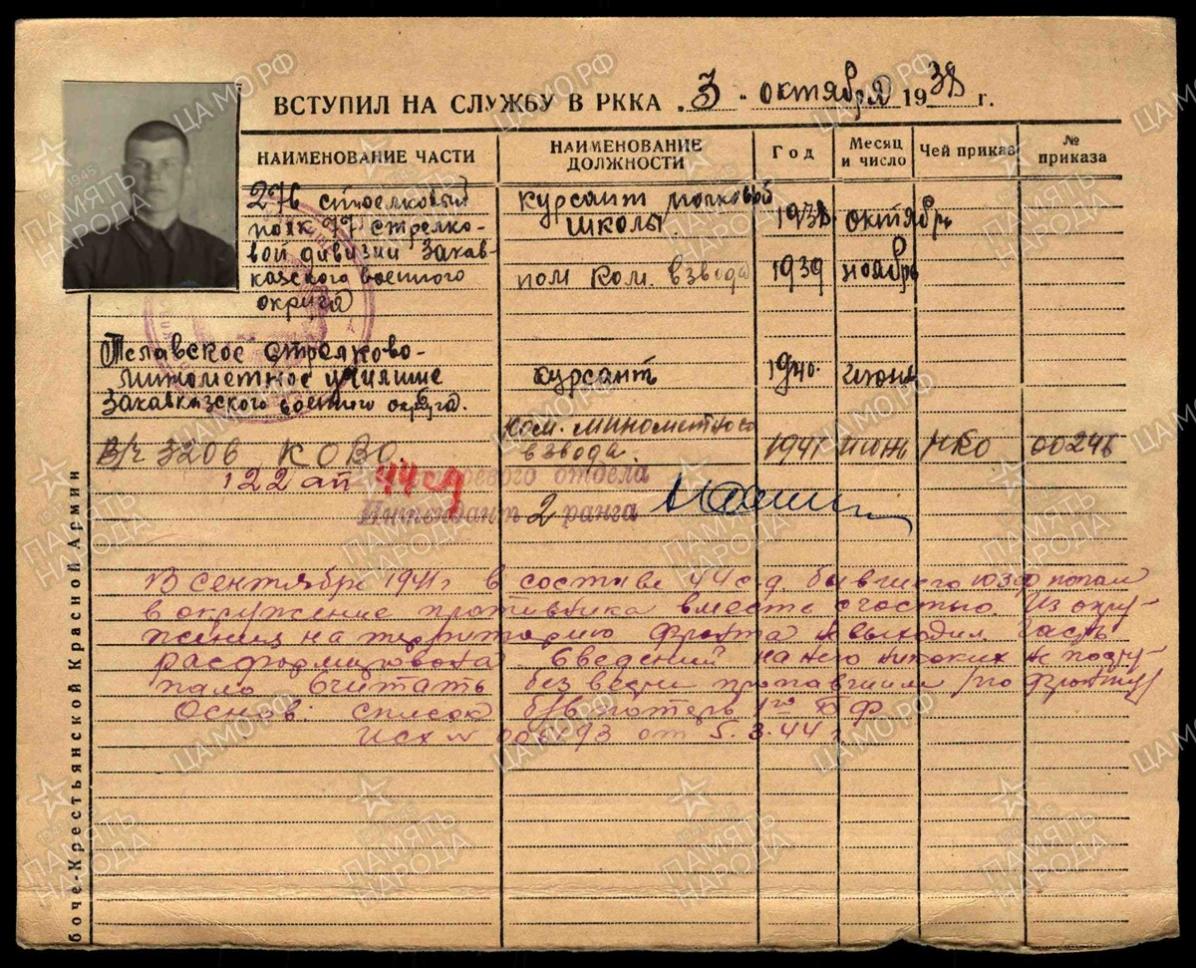 ВСТУПИЛ НА СЛУЖБУ В РККА „3“ октября 1938 г.
НАИМЕНОВАНИЕ ЧАСТИ
НАИМЕНОВАНИЕ ДОЛЖНОСТИ
Год
Месяц и число
Чей приказ
№ приказа
276 стрелковый
полк 77 стрелко-
вой дивизии Закав-
казского военного
округа
курсант полковой
школы.
1938 октябрь
пом ком. взвода 1939 ноябрь
Телавское стрелково-
минометное училище
Закавказского военного округа.
курсант 1940. июнь
В/ч 3206 КОВО.
ком. минометного
взвода. 1941 июнь НКО 00246
122 ап 44 сд
отдела
Интендант 2 ранга
В сентябре 1941 г в составе 44 с.д. бывшего ЮЗФ попал
в окружение противника вместе с частью. Из окру-
жения на территорию фронта не выходил часть
расформирована. Сведений на него никаких не посту-
пало Считать без вести пропавшим /по фронту/
Основ: список б/в потерь 1го БФ
исх № от 5.3.44 г
боче-Крестьянской Красной Армии
ЦАМО.РФ
ПАМЯТЬ НАРОДА
1945